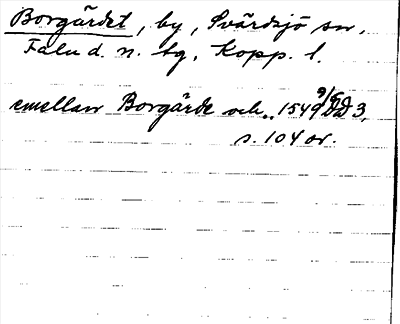 Borgärdet, by, Svärdsjö sn,
Falu d. n. tg, Kopp. l.
emellan Borgärde och .. 1549 9/5 DD 3,
s. 104 or.